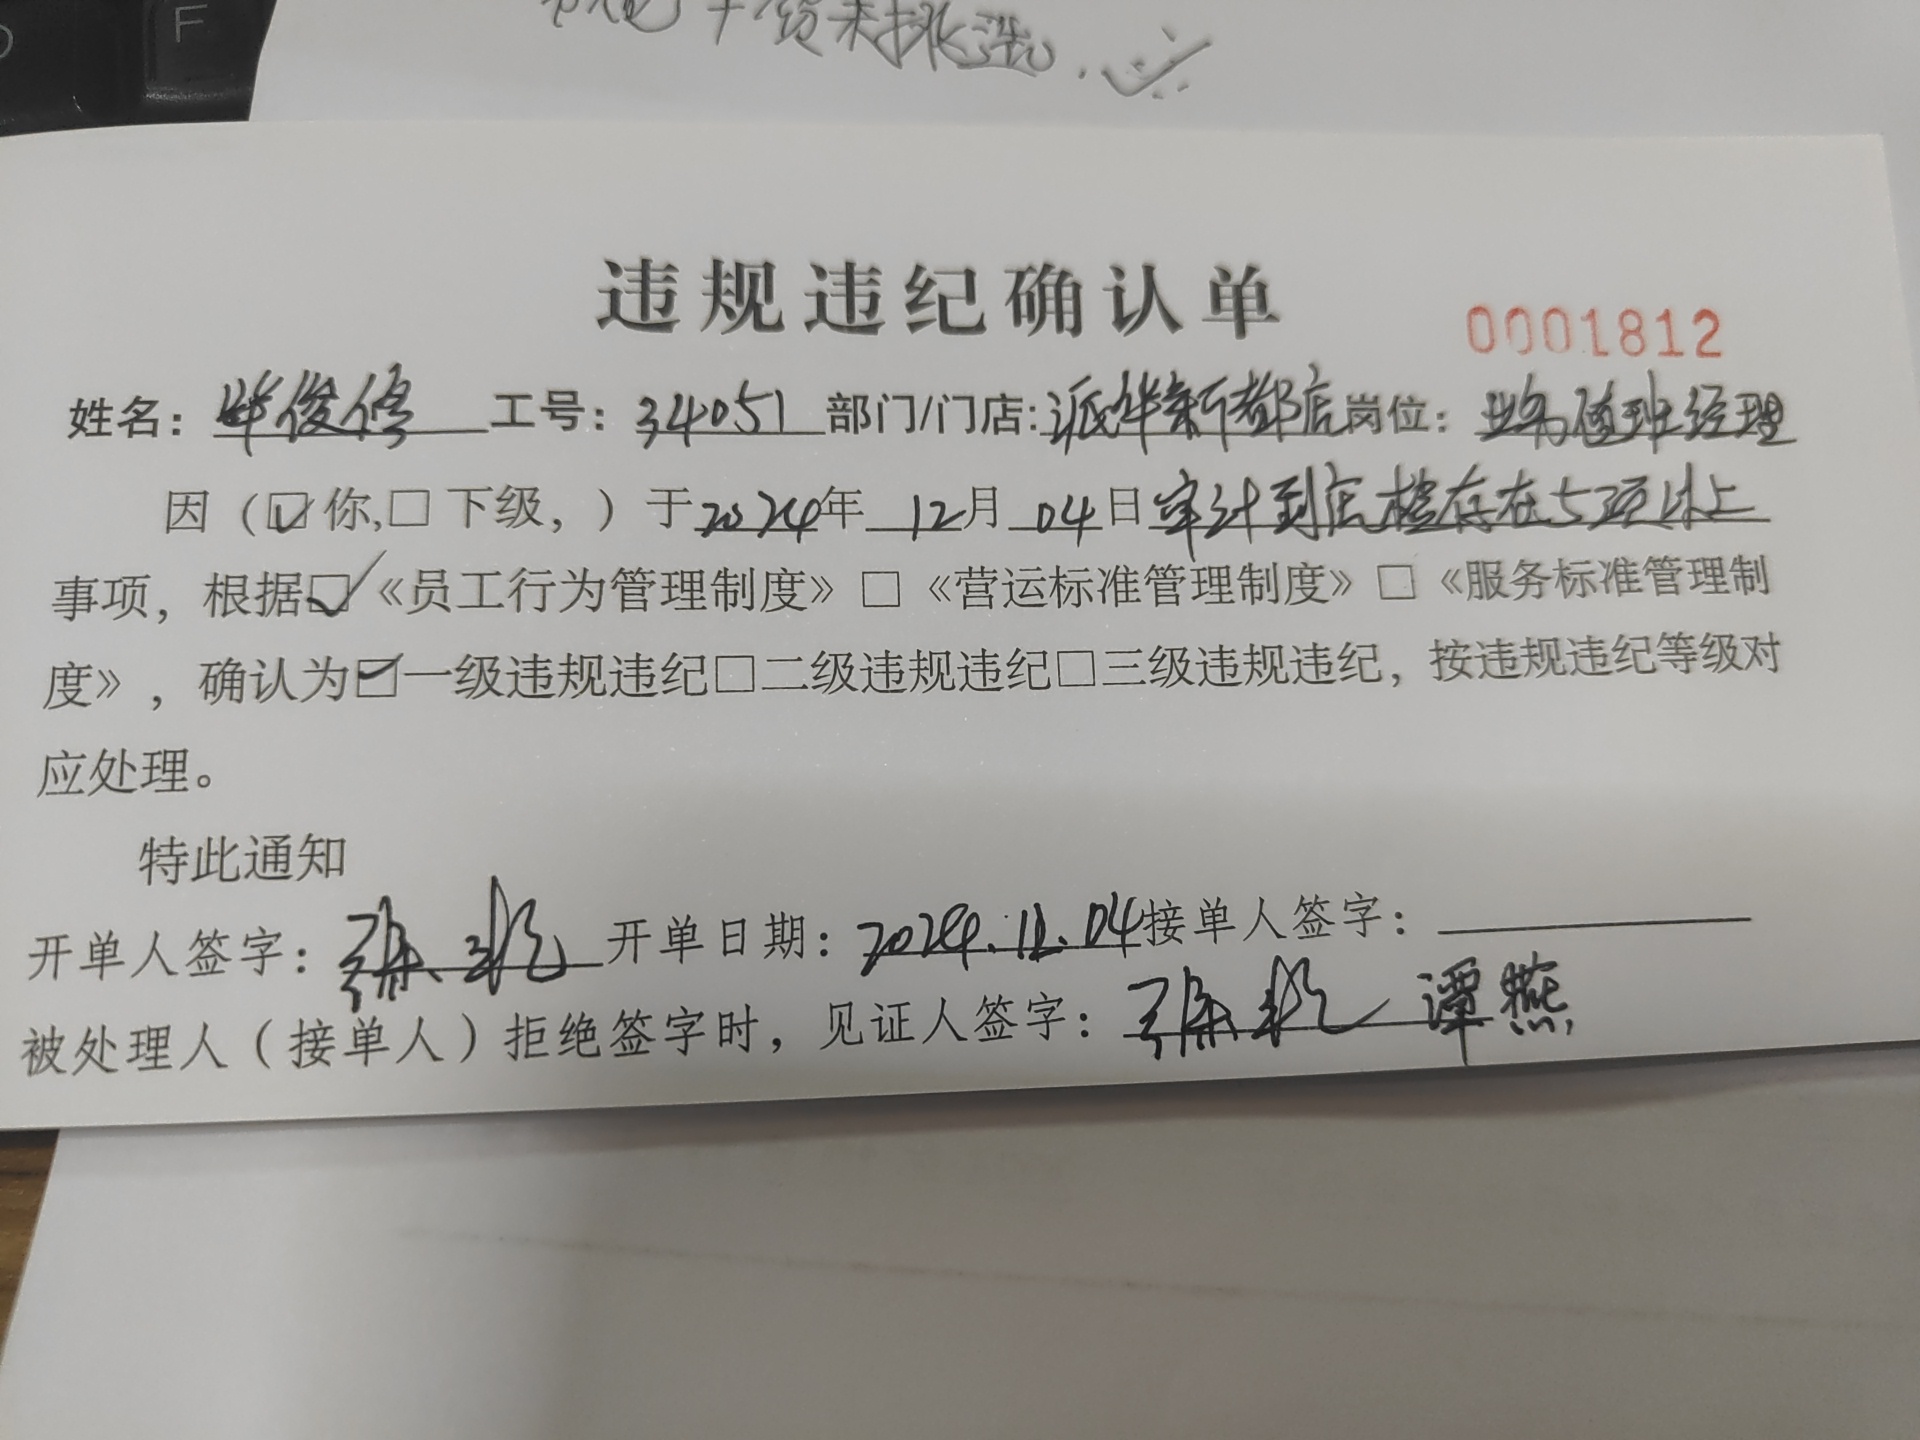 干货未挑选.
违规违纪确认单
0001812
姓名: 毕俊修 工号: 34051 部门/门店: 派华新都店 岗位: 业务值班经理
因（☑你,□下级，）于2024年12月04日审计到店检存在5项以上
事项，根据☑《员工行为管理制度》□《营运标准管理制度》□《服务标准管理制
度》，确认为☑一级违规违纪□二级违规违纪□三级违规违纪，按违规违纪等级对
应处理。
特此通知
开单人签字: 张 开单日期: 2024.12.04 接单人签字:
被处理人（接单人）拒绝签字时，见证人签字: 张 谭燕
F